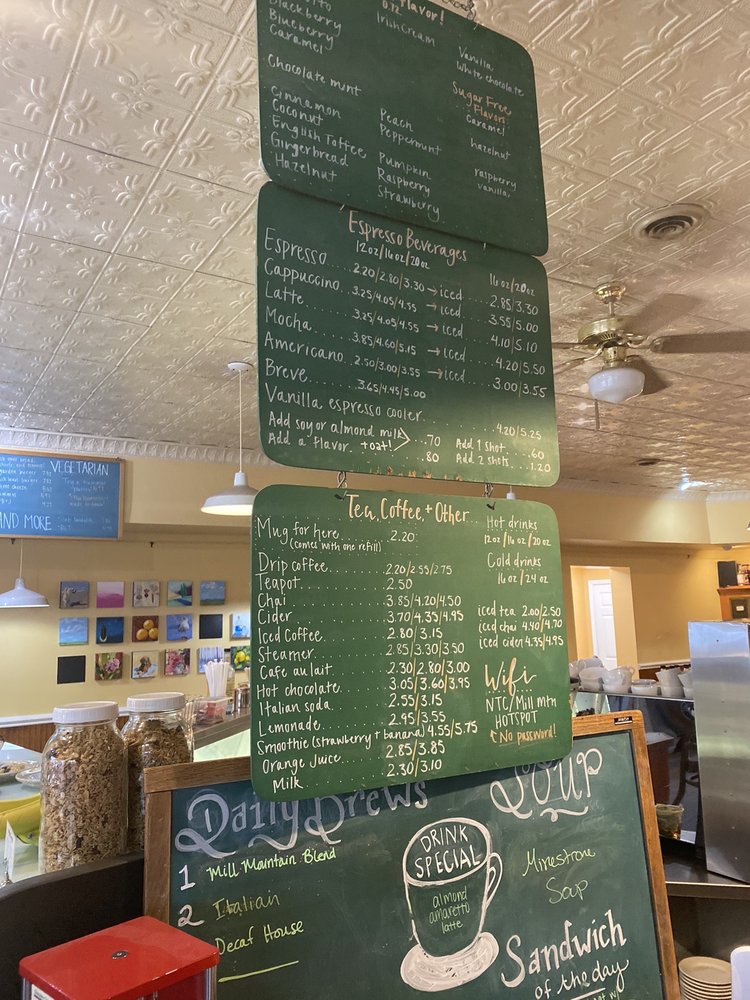 Flavor!
Blackberry
Blueberry
Caramel
Chocolate mint
Cinnamon
Coconut
English Toffee
Gingerbread
Hazelnut
Irish Cream
Peach
Peppermint
Pumpkin
Raspberry
Strawberry
Vanilla
White chocolate
Sugar Free
Flavors
caramel
hazelnut
raspberry
vanilla
Espresso Beverages
12oz/16oz/20oz
16oz/20oz
Espresso....2.20/2.80/3.30→iced....2.85/3.30
Cappuccino...3.25/4.05/4.55→iced...3.55/5.00
Latte........3.25/4.05/4.55→iced...4.10/5.10
Mocha........3.85/4.60/5.15→iced...4.20/5.50
Americano...2.50/3.00/3.55→iced...3.00/3.55
Breve........3.65/4.45/5.00
Vanilla espresso cooler.......4.20/5.25
Add soy or almond milk .70 Add 1 shot .60
+oat!
Add a flavor .80 Add 2 shots...1.20
Tea, Coffee, + Other
Mug for here 2.20
(comes with one refill)
Drip coffee 2.20/2.55/2.75
Teapot 2.50
Chai 3.85/4.20/4.50
Cider 3.70/4.35/4.95
Iced Coffee 2.80/3.15
Steamer 2.85/3.30/3.50
Cafe au lait 2.30/2.80/3.00
Hot chocolate 3.05/3.60/3.95
Italian soda 2.55/3.15
Lemonade 2.95/3.55
Smoothie (strawberry + banana) 4.55/5.75
Orange Juice 2.85/3.85
Milk 2.30/3.10
Hot drinks
12oz/16oz/20oz
Cold drinks
16oz/24oz
iced tea 2.00/2.50
iced chai 4.40/4.70
iced cider 4.35/4.95
Wifi
NTC/Mill mtn
HOTSPOT
No password!
VEGETARIAN
AND MORE
Daily Brews
1 Mill Mountain Blend
2 Italian
Decaf House
DRINK
SPECIAL
almond
amaretto
latte
Soup
Minestrone
Soup
Sandwich
of the day